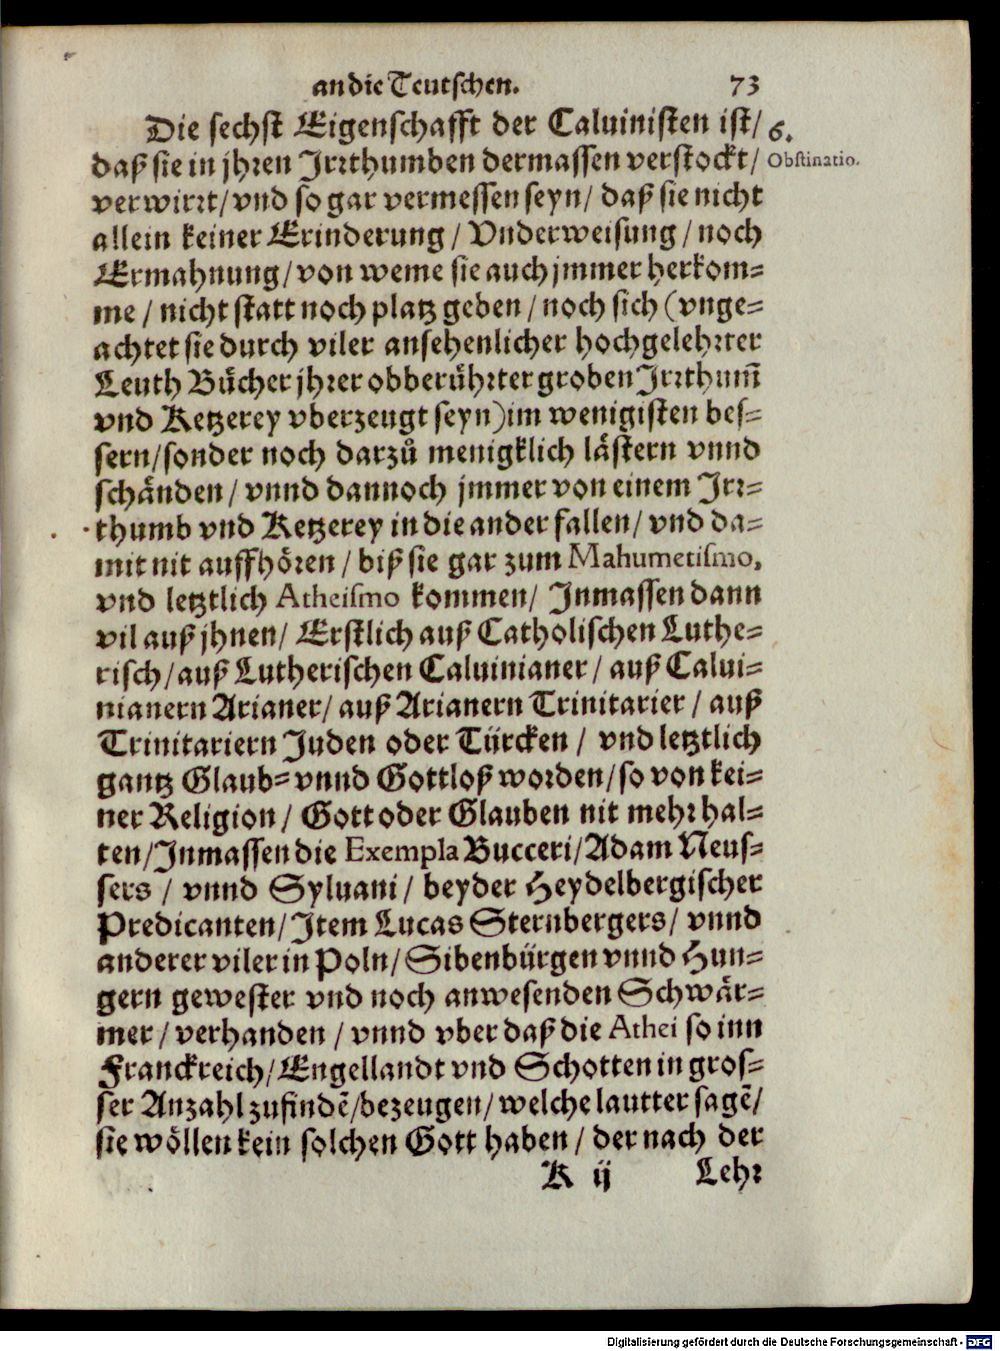 an die Teutschen. 73
Die sechst Eigenschafft der Caluinisten ist/ 6.
daß sie in jhren Irrthumben dermassen verstockt/ Obstinatio.
verwirrt/ vnd so gar vermessen seyn/ daß sie nicht
allein keiner Erinderung / Vnderweisung / noch
Ermahnung/ von weme sie auch jmmer herkom=
me / nicht statt noch platz geben / noch sich (vnge=
achtet sie durch viler ansehenlicher hochgelehrter
Leuth Bücher jhrer obberührter groben Irrthum̃
vnd Ketzerey vberzeugt seyn) im wenigisten bes=
sern/ sonder noch darzů menigklich lästern vnnd
schänden / vnnd dannoch jmmer von einem Irr=
thumb vnd Ketzerey in die ander fallen/ vnd da=
mit nit auffhören / biß sie gar zum Mahumetismo,
vnd letztlich Atheismo kommen/ Inmassen dann
vil auß jhnen/ Erstlich auß Catholischen Luthe=
risch/ auß Lutherischen Caluinianer/ auß Calui=
nianern Arianer/ auß Arianern Trinitarier / auß
Trinitariern Juden oder Türcken / vnd letztlich
gantz Glaub= vnnd Gottloß worden/ so von kei=
ner Religion/ Gott oder Glauben nit mehr hal=
ten/ Inmassen die Exempla Bucceri/ Adam Neus=
sers / vnnd Syluani/ beyder Heydelbergischer
Predicanten/ Item Lucas Sternbergers/ vnnd
anderer viler in Poln/ Sibenbürgen vnnd Hun=
gern gewester vnd noch anwesenden Schwär=
mer / verhanden / vnnd vber daß die Athei so inn
Franckreich/ Engellandt vnd Schotten in gros=
ser Anzahl zufindẽ/ bezeugen/ welche lautter sagẽ/
sie wöllen kein solchen Gott haben / der nach der
K ij Lehr
Digitalisierung gefördert durch die Deutsche Forschungsgemeinschaft - DFG